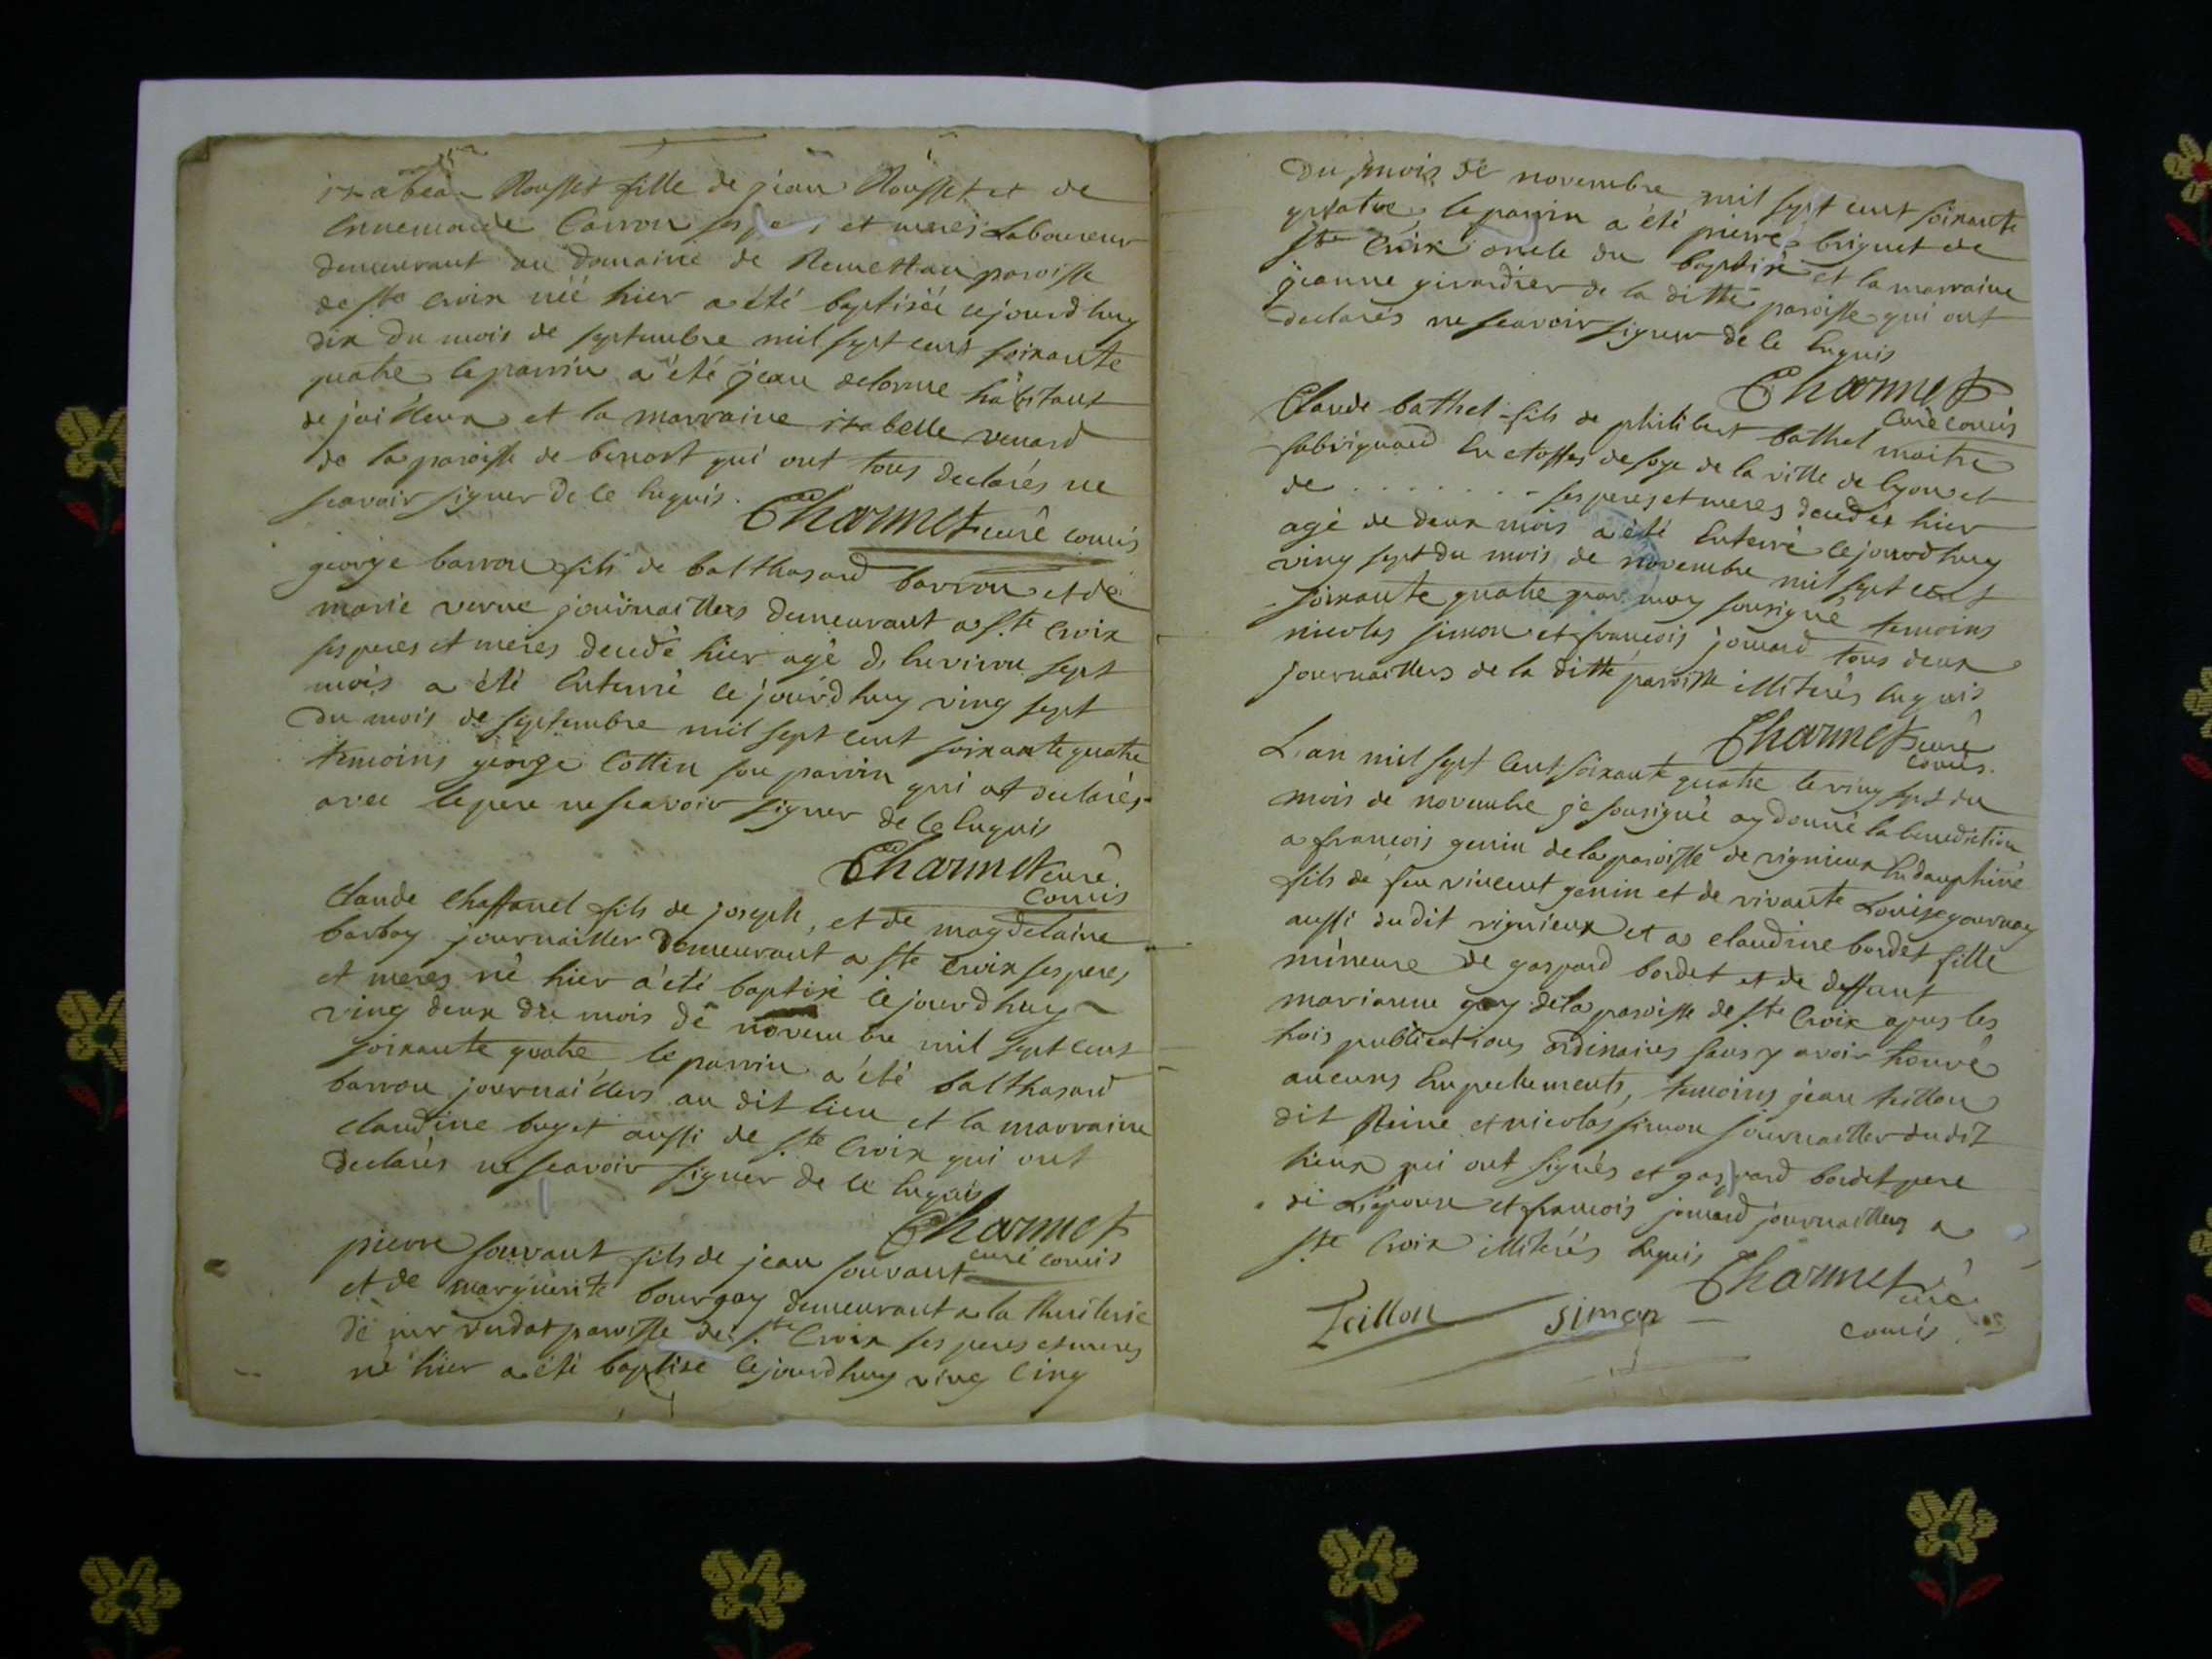 izabeau Rousset fille de jean Rousset et de
Ennemonde Carron ses peres et meres Laboureur
demeurant au domaine de Remettau paroisse
de Ste Croix née hier a été baptisée cejourdhuy
dix du mois de septembre mil sept cent soixante
quatre le parrin a été jean delorme habitant
de jailleux et la marraine izabelle renard
de la paroisse de benost qui ont tous declarés ne
scavoir signer de ce Enquis. Charmet curé comis
george barrou fils de balthasard barrou et de
marie verne journaillers demeurant a Ste Croix
ses peres et meres decedé hier agé d Environ sept
mois a été Enterré cejourdhuy ving sept
du mois de septembre mil sept cent soixante quatre
temoins george Cottin son parrin qui ot declarés
avec le pere ne scavoir signer de ce Enquis
Charmet curé
Comis
Claude Chaffanel fils de joseph, et de magdelaine
barbay journailler demeurant a Ste Croix ses peres
et meres né hier a été baptisé cejourdhuy
ving deux du mois de novembre mil sept cent
soixante quatre le parrin a été balthasard
barrou journaillers au dit lieu et la marraine
claudine buget aussi de Ste Croix qui ont
declarés ne scavoir signer de ce Enquis
Charmet
curé comis
pierre souvant fils de jean souvant
et de marguerite bourgay demeurant a la thuilerie
de paroisse de Ste Croix ses peres et meres
né hier a été baptisé cejourdhuy ving Cinq
du mois de novembre mil sept cent soixante
quatre le parrin a été pierre briguet de
Ste Croix oncle du baptisé et la marraine
jeanne girardier de la ditte paroisse qui ont
declarés ne scavoir signer de ce Enquis
Charmet
Curé comis
Claude bathel fils de philibert bathel maitre
fabriquand En etoffes de soye de la ville de Lyon et
de . . . . . . . . ses peres et meres decedés hier
agé de deux mois a été Enterré cejourdhuy
ving sept du mois de novembre mil sept cent
soixante quatre par moy sousigné temoins
nicolas simon et francois jomard tous deux
journaillers de la ditte paroisse illiterés Enquis
Charmet curé
comis.
L'an mil sept Cent soixante quatre le ving sept du
mois de novembre je sousigné ay donné la benediction
a francois genin de la paroisse de vignieux En dauphiné
fils de feu vincent genin et de vivante Louise gournay
aussi du dit vignieux et a claudine bordet fille
mineure de gaspard bordet et de deffunt
marianne gay de la paroisse de Ste Croix apres les
trois publications ordinaires sans y avoir trouvé
aucuns Empechements, temoins jean teillon
dit Reine et nicolas simon journailler du dit
lieux qui ont signés et gaspard bordet pere
de L'epouse et francois jomard journaillers a
Ste Croix illiterés Enquis
Charmet
curé
comis
Teillon simon